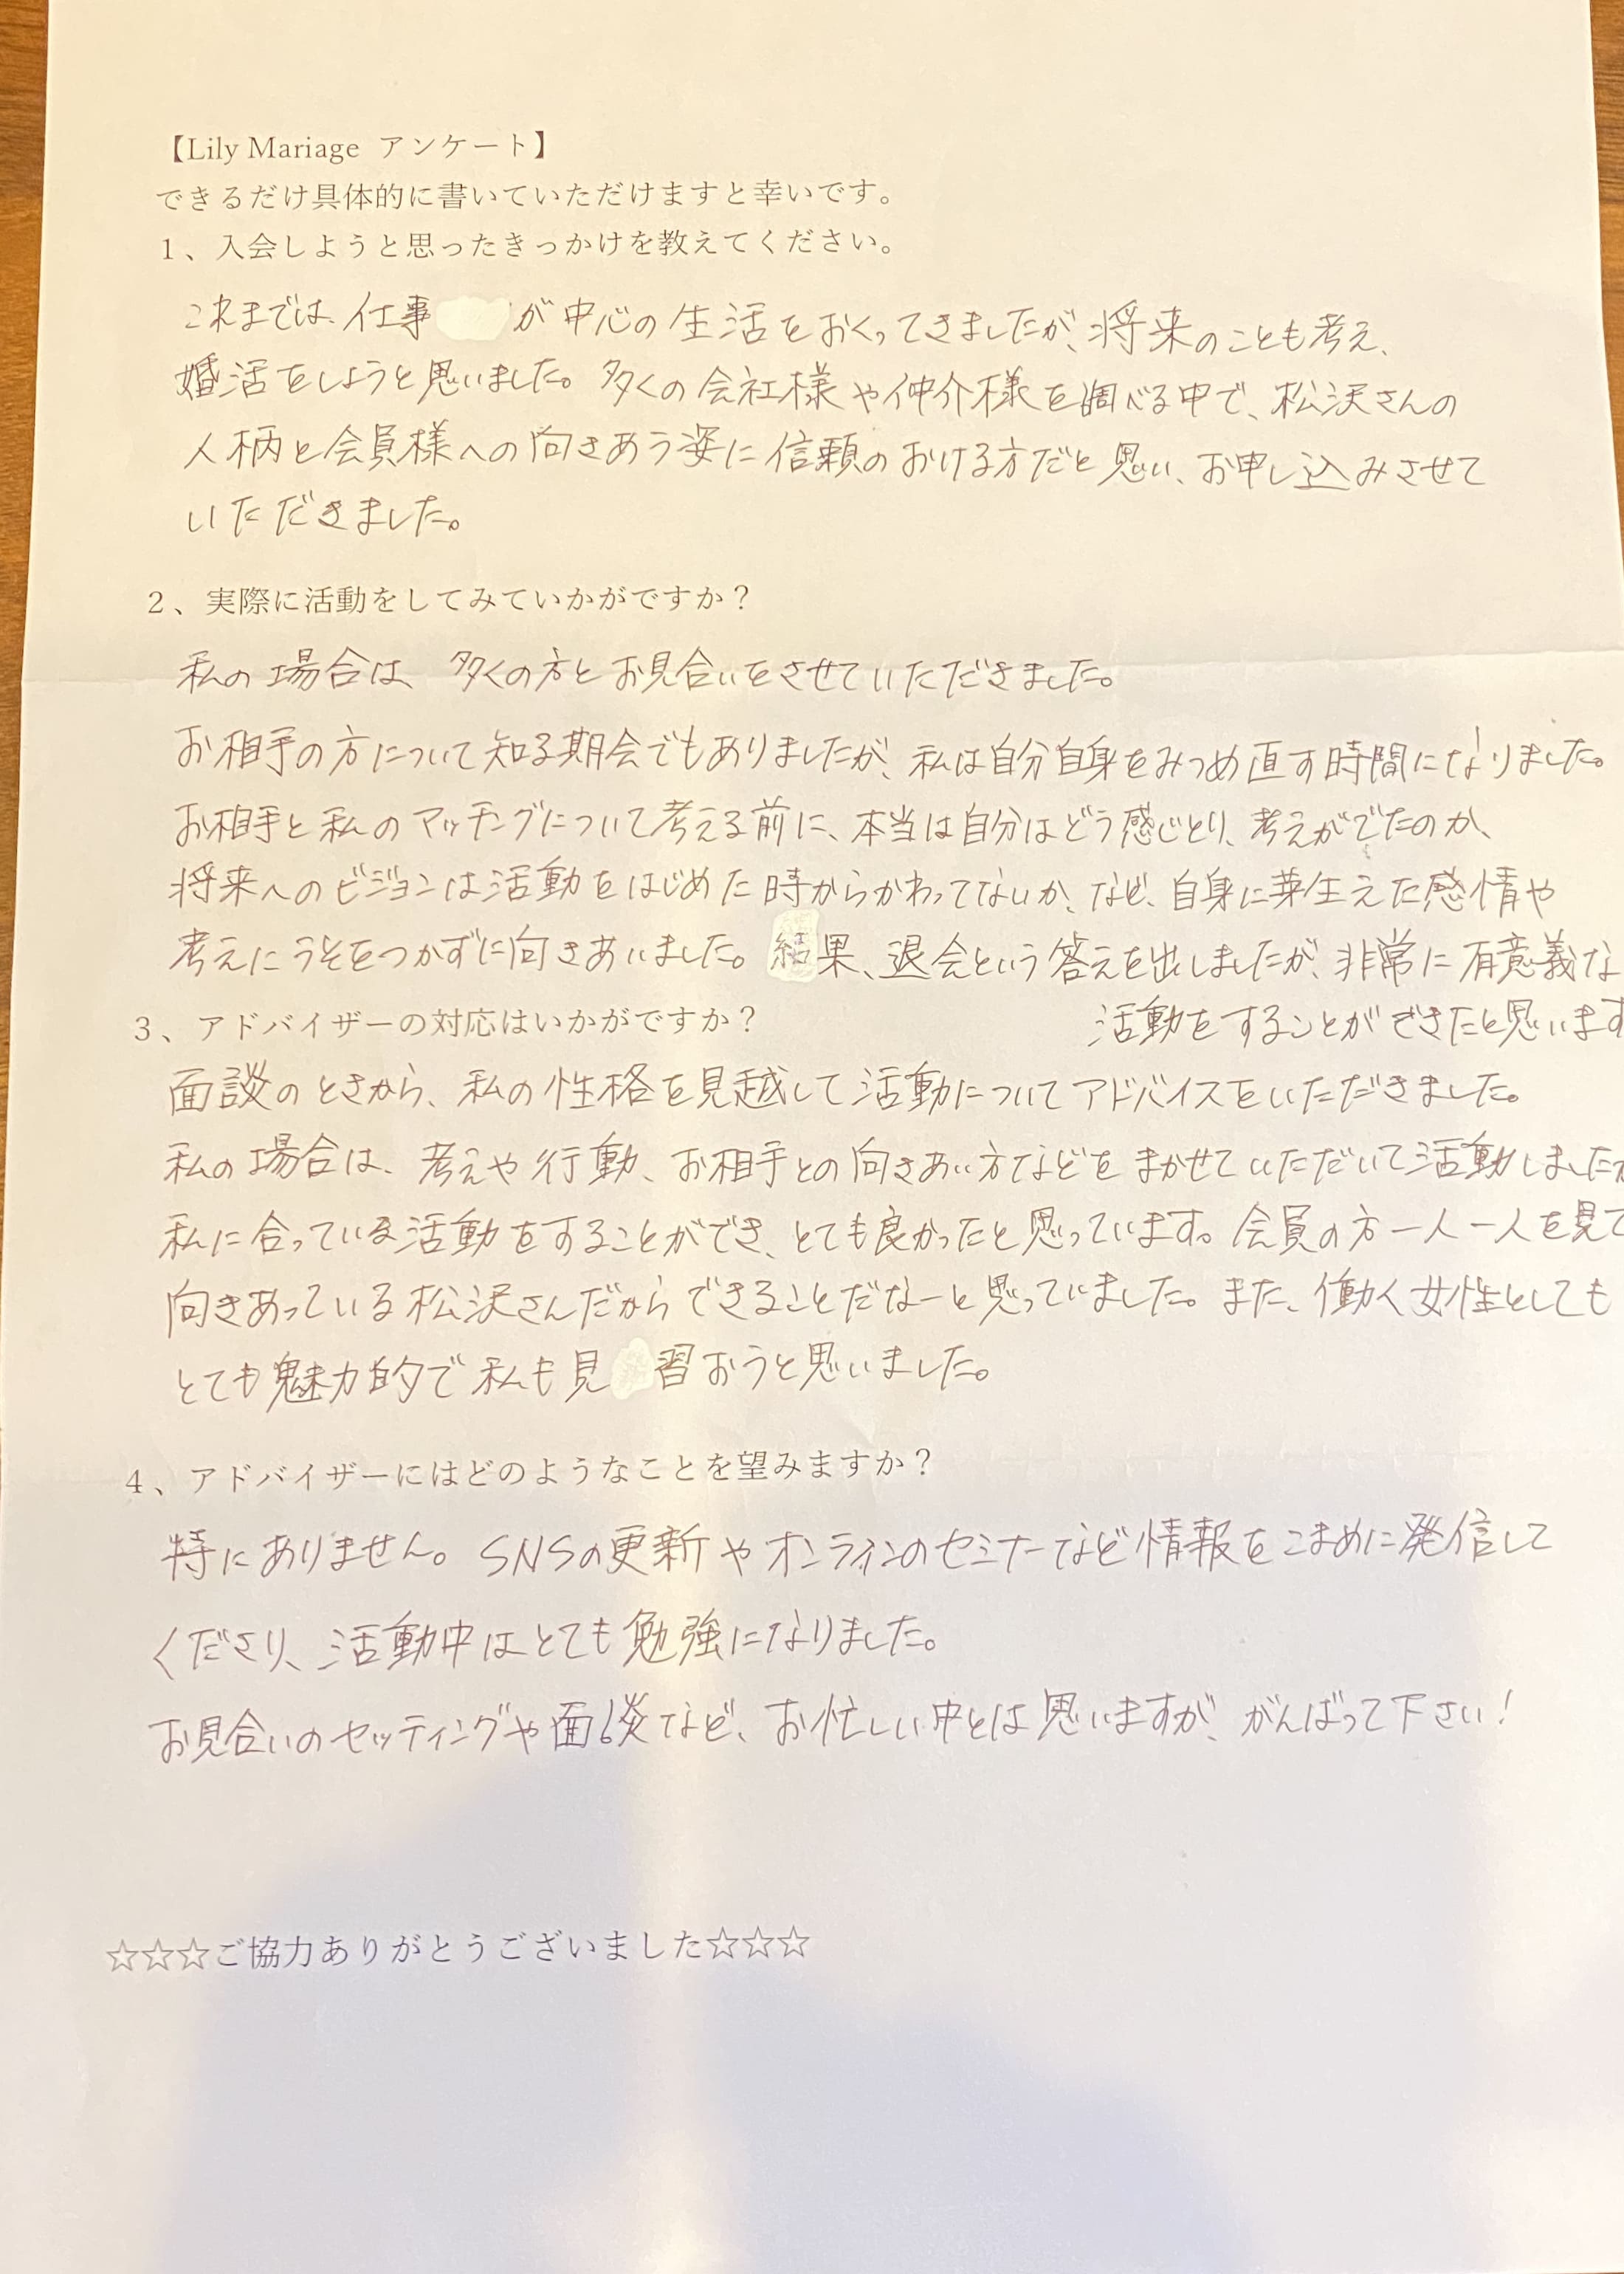 【Lily Mariage アンケート】
できるだけ具体的に書いていただけますと幸いです。
１、入会しようと思ったきっかけを教えてください。
これまでは、仕事が中心の生活をおくってきましたが、将来のことも考え、
婚活をしようと思いました。多くの会社様や仲介様を調べる中で、松沢さんの
人柄と会員様への向きあう姿に信頼のおける方だと思い、お申し込みさせて
いただきました。
２、実際に活動をしてみていかがですか？
私の場合は、多くの方とお見合いをさせていただきました。
お相手の方について知る期会でもありましたが、私は自分自身をみつめ直す時間になりました。
お相手と私のマッチングについて考える前に、本当は自分はどう感じとり、考えがでたのか、
将来へのビジョンは活動をはじめた時からかわってないか、など、自身に芽生えた感情や
考えにうそをつかずに向きあいました。結果、退会という答えを出しましたが、非常に有意義な
活動をすることができたと思います
３、アドバイザーの対応はいかがですか？
面談のときから、私の性格を見越して活動についてアドバイスをいただきました。
私の場合は、考えや行動、お相手との向きあい方などをまかせていただいて活動しましたが
私に合っている活動をすることができ、とても良かったと思っています。会員の方一人一人を見て
向きあっている松沢さんだからできることだなーと思っていました。また、働く女性としても
とても魅力的で私も見習おうと思いました。
４、アドバイザーにはどのようなことを望みますか？
特にありません。SNSの更新やオンラインのセミナーなど情報をこまめに発信して
くださり、活動中はとても勉強になりました。
お見合いのセッティングや面談など、お忙しい中とは思いますが、がんばって下さい！
☆☆☆ご協力ありがとうございました☆☆☆